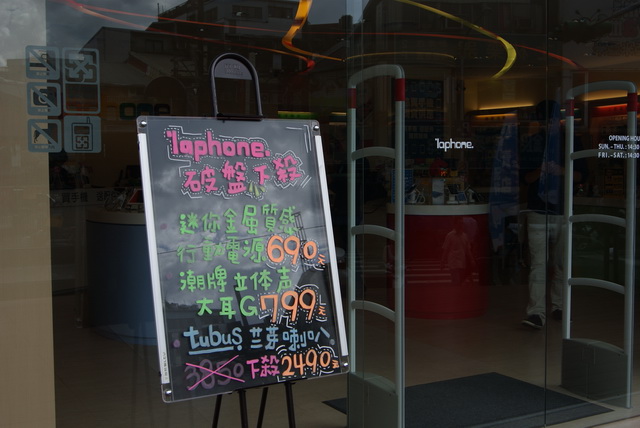 1aphone.
破盤下殺
迷你金屬質感
行動電源690元
潮牌立体声
大耳G799元
tubus 藍芽喇叭
3890下殺2490元
1aphone.
OPENING HOU
SUN. - THU. : 14:30
FRI. - SAT. : 14:30